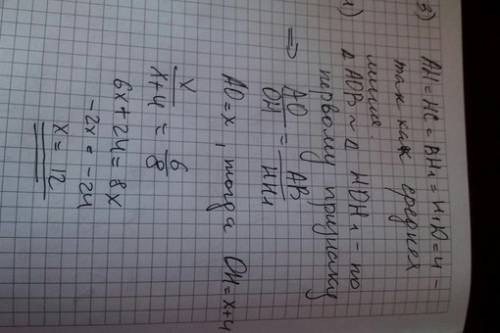 3) AH = HC = BH₁ = H₁D = 4 -
так как средняя
линия.
1) Δ AOB ~ Δ HOH₁ - по
первому признаку
⇒ AO/OH = AB/HH₁
AO = x, тогда OH = x+4
x/x+4 = 6/8
6x + 24 = 8x
-2x = -24
x = 12